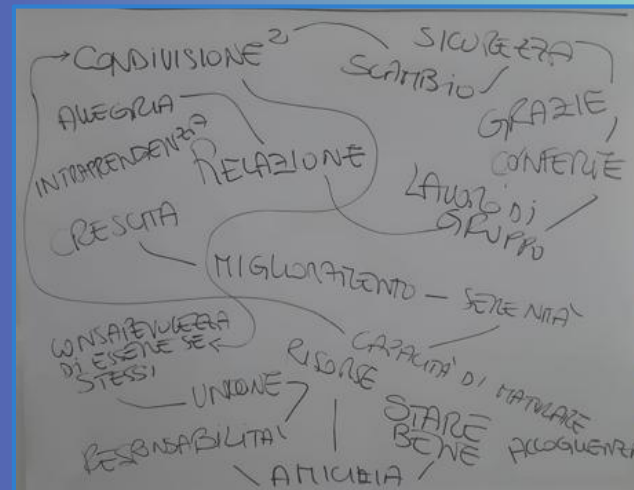 CONDIVISIONE 2
SICUREZZA
SCAMBIO
ALLEGRIA
GRAZIE
INTRAPRENDENZA
RELAZIONE
CONFERME
LAVORO DI
GRUPPO
CRESCITA
MIGLIORAMENTO — SERENITÀ
CONSAPEVOLEZZA
DI ESSERE SE
STESSI
CAPACITÀ DI MATURARE
RISORSE
UNIONE
STARE
BENE
ACCOGLIENZA
RESPONSABILITÀ
AMICIZIA